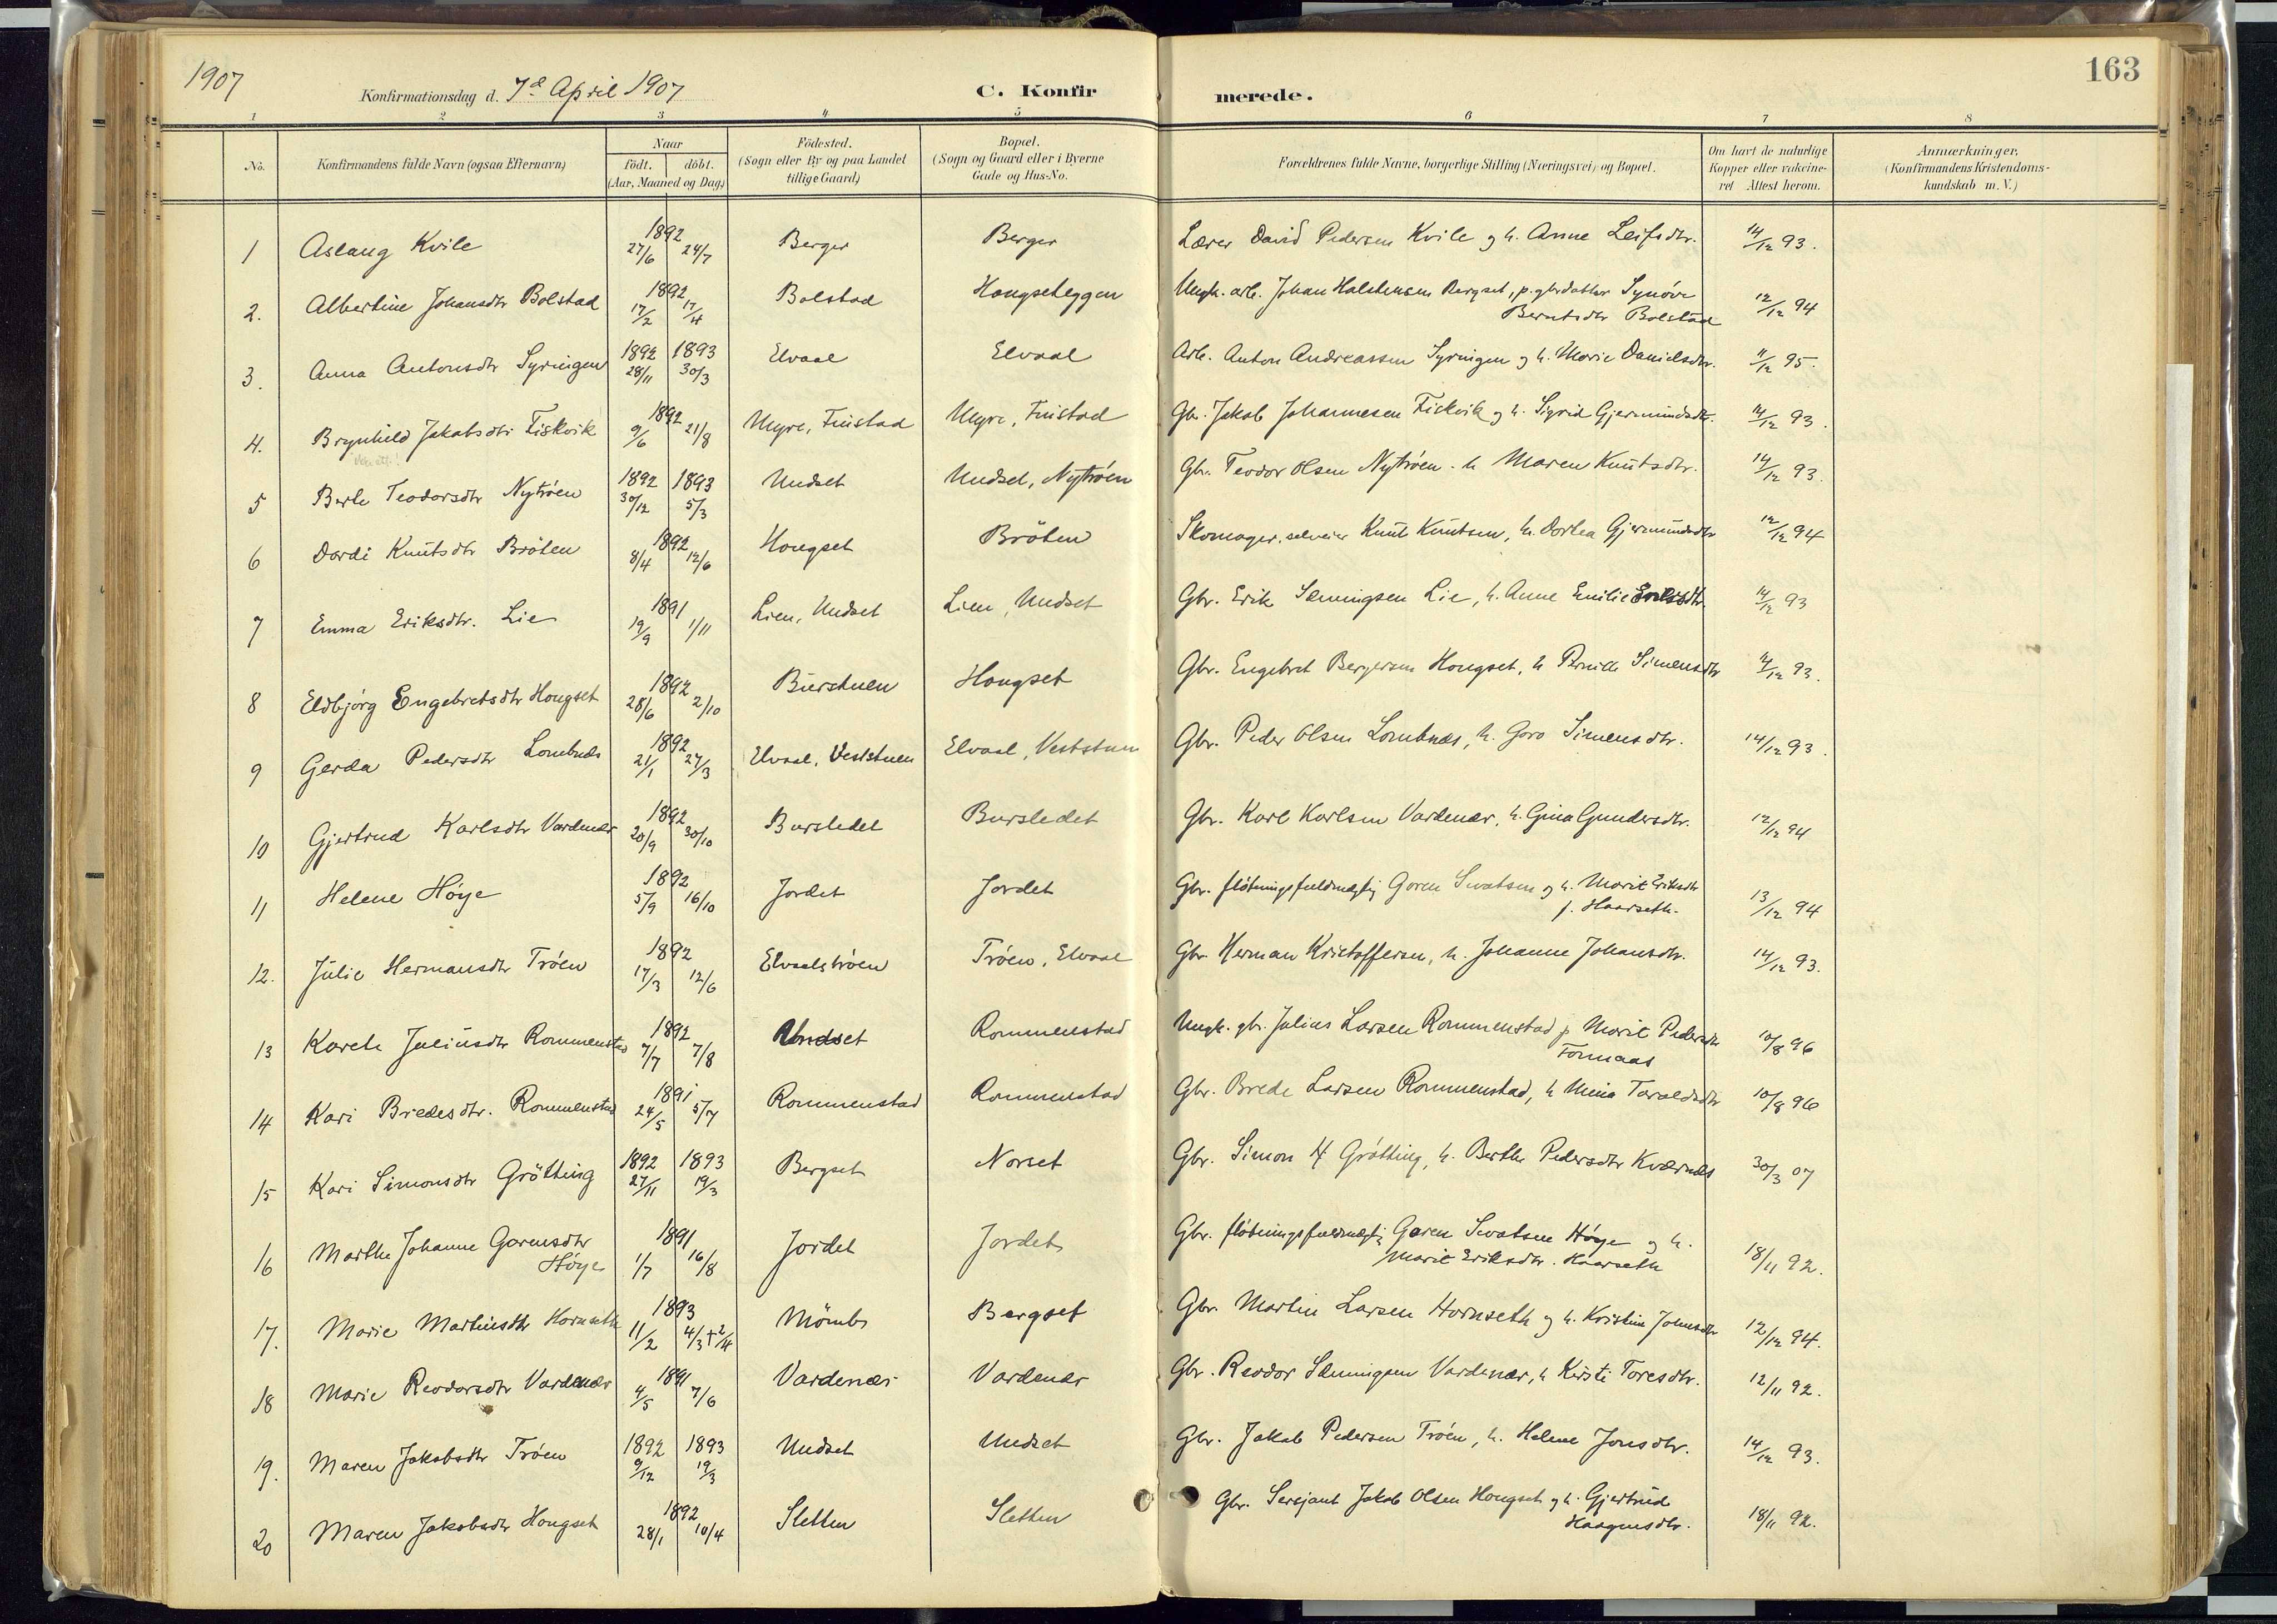 1907
163
Konfirmationsdag d. 7d April 1907
C. Konfirmerede.
1 2 3 4 5 6 7 8
No. Konfirmandens fulde Navn (ogsaa Efternavn) Naar født. døbt. (Aar, Maaned og Dag) Födested. (Sogn eller By og paa Landet tillige Gaard) Bopæl. (Sogn og Gaard eller i Byerne Gade og Hus-No. Forældrenes fulde Navne, borgerlige Stilling (Næringsvei) og Bopæl. Om havt de naturlige Kopper eller vakcineret Attest herom. Anmærkninger. (Konfirmandens Kristendomskundskab m. V.)
1 Aslaug Kvile 1892 27/6 24/7 Berger Berger Lærer David Pedersen Kvile og h. Anne Leifsdtr. 14/12 93.
2. Albertine Johansdtr Bolstad 1892 17/2 17/4 Bolstad Hongseteggen Ungk. arb. Johan Halstensen Bergset, p. gbrdatter Synöve
Berntsdtr Bolstad 12/12 94
3. Anna Antonsdtr Syringen 1892 28/11 1893 30/3 Elvaal Elvaal Arb. Anton Andreassen Syringen og h. Marie Danielsdtr. 11/12 95.
4. Brynhild Jakobsdtr Fiskvik 1892 9/6 21/8 Myre, Finstad Myre, Finstad Gbr. Jakob Johannesen Fiskvik og h. Sigrid Gjermundsdtr. 14/12 93.
5 Berte Teodorsdtr Nytröen 1892 30/12 1893 5/3 Undset Undset, Nytröen Gbr. Teodor Olsen Nytröen. h Maren Knutsdtr. 14/12 93.
6 Dordi Knutsdtr Bröten 1892 8/4 12/6 Hongset Bröten Skomager, selveier Knut Knutsen, h. Dortea Gjermundsdtr 12/12 94
7 Emma Eriksdtr. Lie 1891 19/9 1/11 Lien, Undset Lien, Undset Gbr. Erik Semmingsen Lie, h. Anne Emilie Erlsdtr. 14/12 93
8 Eldbjørg Engebretsdtr Hongset 1892 28/6 2/10 Burstuen Hongset Gbr. Engebret Bergersen Hongset, h Pernille Simensdtr 14/12 93.
9 Gerda Pedersdtr Lombnæs 1892 21/1 27/3 Elvaal, Veststuen Elvaal, Veststuen Gbr. Peder Olsen Lombnæs, h. Goro Simensdtr. 14/12 93.
10 Gjertrud Karlsdtr Vardenær 1892 20/9 30/10 Bursledet Bursledet Gbr. Karl Karlsen Vardenær, h. Gina Gundersdtr. 12/12 94
11 Helene Høye 1892 5/9 16/10 Jordet Jordet Gbr. flötningsfuldmægtig Goren Sivatsen og h. Marit Eriksdtr
f. Haarseth. 13/12 94
12. Julie Hermansdtr Tröen 1892 17/3 12/6 Elvaalströen Tröen, Elvaal Gbr Herman Kristoffersen, h. Johanne Johansdtr. 14/12 93.
13 Karete Juliusdtr Rommenstad 1892 7/7 7/8 Undset Rommenstad Ungk. gbr. Julius Larsen Rommenstad p Marit Pedersdtr
Formaas 10/8 96
14 Kari Bredesdtr. Rommenstad 1891 24/5 5/7 Rommenstad Rommenstad Gbr. Brede Larsen Rommenstad, h Mina Taraldsdtr 10/8 96
15 Kari Simonsdtr Grötting 1892 27/11 1893 19/3 Bergset Norset Gbr. Simon H Grötting, h. Berthe Pedersdtr Kværnæs 30/3 07
16 Marthe Johanne Gorensdtr
Höye 1891 1/7 16/8 Jordet Jordet Gbr. flötningsfuldmægtig Goren Sivatsen Höye og h.
Marit Eriksdtr. Haarseth 18/11 92.
17. Marie Martinsdtr Hornseth 1893 11/2 4/3 + 2/4 Mömb Bergset Gbr. Martin Larsen Hornseth og h. Kristine Johnsdtr 12/12 94.
18 Marie Reodorsdtr Vardenær 1891 4/5 7/6 Vardenær Vardenær Gbr. Reodor Semmingsen Vardenær, h Kirsti Toresdtr. 12/11 92.
19. Maren Jakobsdtr Tröen 1892 9/12 1893 19/3 Undset Undset Gbr. Jakob Pedersen Tröen, h. Helene Jonsdtr. 14/12 93.
20 Maren Jakobsdtr Hongset 1892 28/1 10/4 Sletten Sletten Gbr. Sersjant Jakob Olsen Hongset og h. Gjertrud
Haagensdtr. 18/11 92.